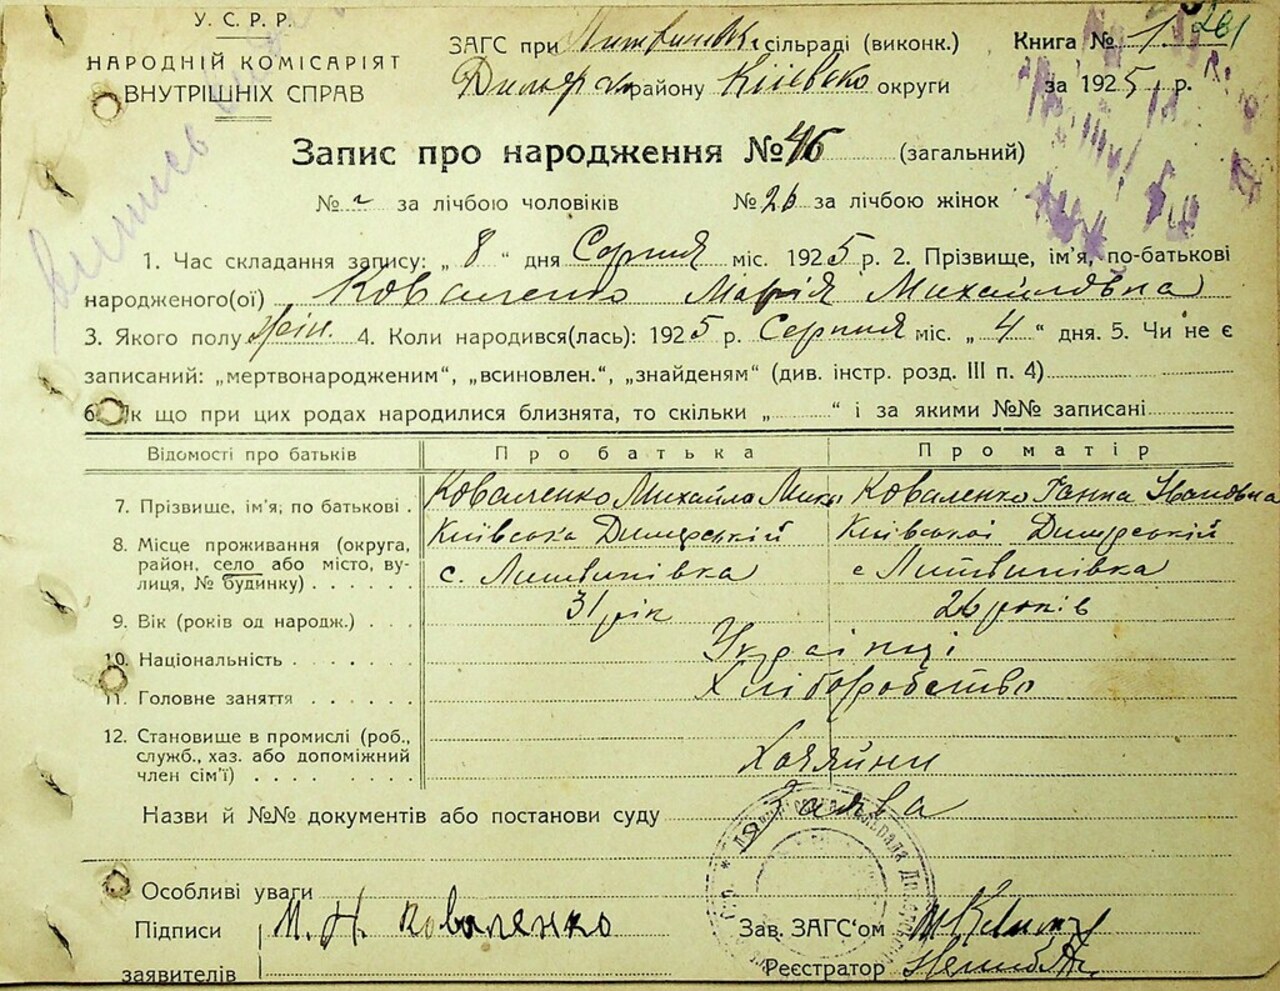 У. С. Р. Р.
НАРОДНІЙ КОМІСАРІЯТ
ВНУТРІШНІХ СПРАВ
ЗАГС при Литвинівк. сільраді (виконк.)
Димерськ району Київсько округи
Книга № 1 261
за 1925 р.
Запис про народження № 46 (загальний)
№ за лічбою чоловіків № 26 за лічбою жінок
1. Час складання запису: „ 8 “ дня Серпня міс. 1925 р. 2. Прізвище, ім'я, по-батькові
народженого(ої) Коваленко Марія Михайловна
3. Якого полу жін. 4. Коли народився(лась): 1925 р. Серпня міс. „ 4 “ дня. 5. Чи не є
записаний: „мертвонародженим“, „всиновлен.“, „знайденям“ (див. інстр. розд. III п. 4)
6. Як що при цих родах народилися близнята, то скільки „ “ і за якими №№ записані
Відомості про батьків Про батька Про матір
7. Прізвище, ім'я, по батькові . Коваленко Михайло Мики Коваленко Ганна Івановна
8. Місце проживання (округа, Київська Димерській Київської Димерській
район, село або місто, ву- с. Литвинівка с Литвинівка
лиця, № будинку) . . . . .
9. Вік (років од народж.) . . . 31 рік 26 років
10. Національність . . . . . . . Українці
11. Головне заняття . . . . . . Хліборобство
12. Становище в промислі (роб.,
служб., хаз. або допоміжний Хазяйни
член сім'ї) . . . . . . . . .
Назви й №№ документів або постанови суду Заява
Особливі уваги
Підписи М. Н. Коваленко Зав. ЗАГС'ом
заявителів Реєстратор